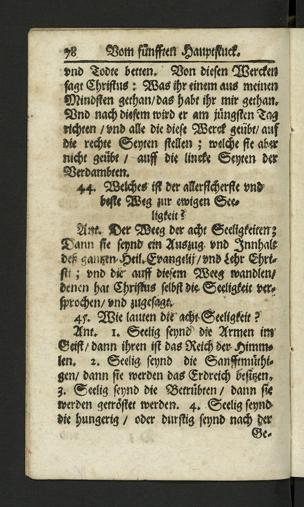 78 Vom fünfften Hauptstuck.
vnd Todte betten. Von diesen Wercken
sagt Christus: Was ihr einem aus meinen
Mindsten gethan/ das habt ihr mir gethan.
Vnd nach diesem wird er am jüngsten Tag
richten/ vnd alle die diese Werck geübt/ auf
die rechte Seyten stellen; welche sie aber
nicht geübt/ auff die lincke Seyten der
Verdambten.
44. Welches ist der allersicherste vnd
beste Weg zur ewigen See-
ligkeit?
Ant. Der Weeg der acht Seeligkeiten;
Dann sie seynd ein Auszug vnd Innhalt
deß gantzen Heil. Evangelij/ vnd Lehr Chri-
sti; vnd die auff diesem Weeg wandlen/
denen hat Christus selbst die Seeligkeit ver-
sprochen/ vnd zugesagt.
45. Wie lauten die acht Seeligkeit?
Ant. 1. Seelig seynd die Armen im
Geist/ dann ihren ist das Reich der Himm-
len. 2. Seelig seynd die Sanfftmüthi-
gen/ dann sie werden das Erdreich besitzen.
3. Seelig seynd die Betrübten/ dann sie
werden getröstet werden. 4. Seelig seynd
die hungerig/ oder durstig seynd nach der
Ge-